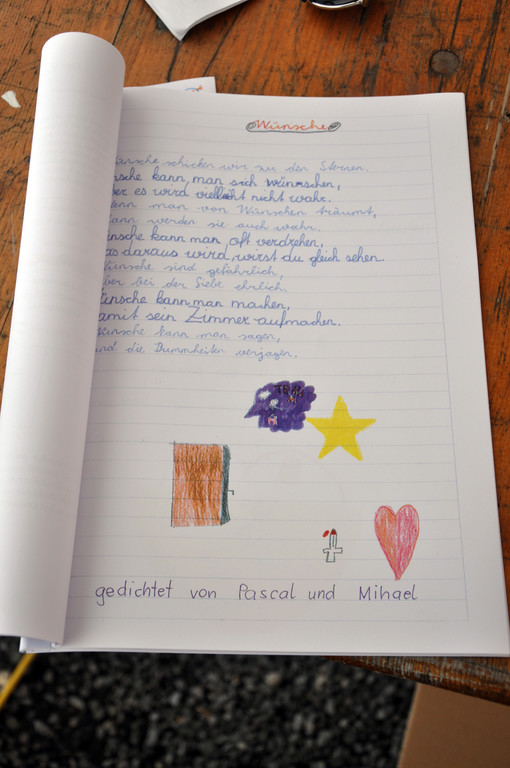 Wünsche
ünsche schicken wir zu den Sternen.
sche kann, man sich wünschen,
er es wird vielleiht nicht wahr.
enn man von Wünschen träumt,
ann werden sie auch wahr.
nsche kann man oft verdrehen,
as daraus wird, wirst du gleich sehen.
ünsche sind gefährlich,
ber bei der Liebe ehrlich.
ünsche kann man machen,
amit sein Zimmer aufmachen.
ünsche kann man sagen,
nd die Dummheiten verjagen.
gedichtet von Pascal und Mihael